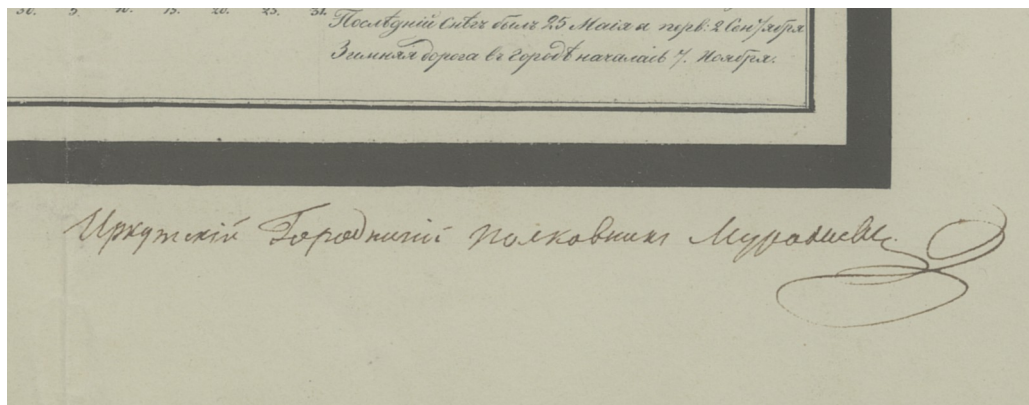 30. 5. 10. 15. 20. 25. 31.
Послѣдній снѣгъ былъ 25 Маія а перв: 2 Сентября
Зимняя дорога въ городѣ началась 7. Ноября.
Иркутскій Городничій полковникъ Муравьевъ.